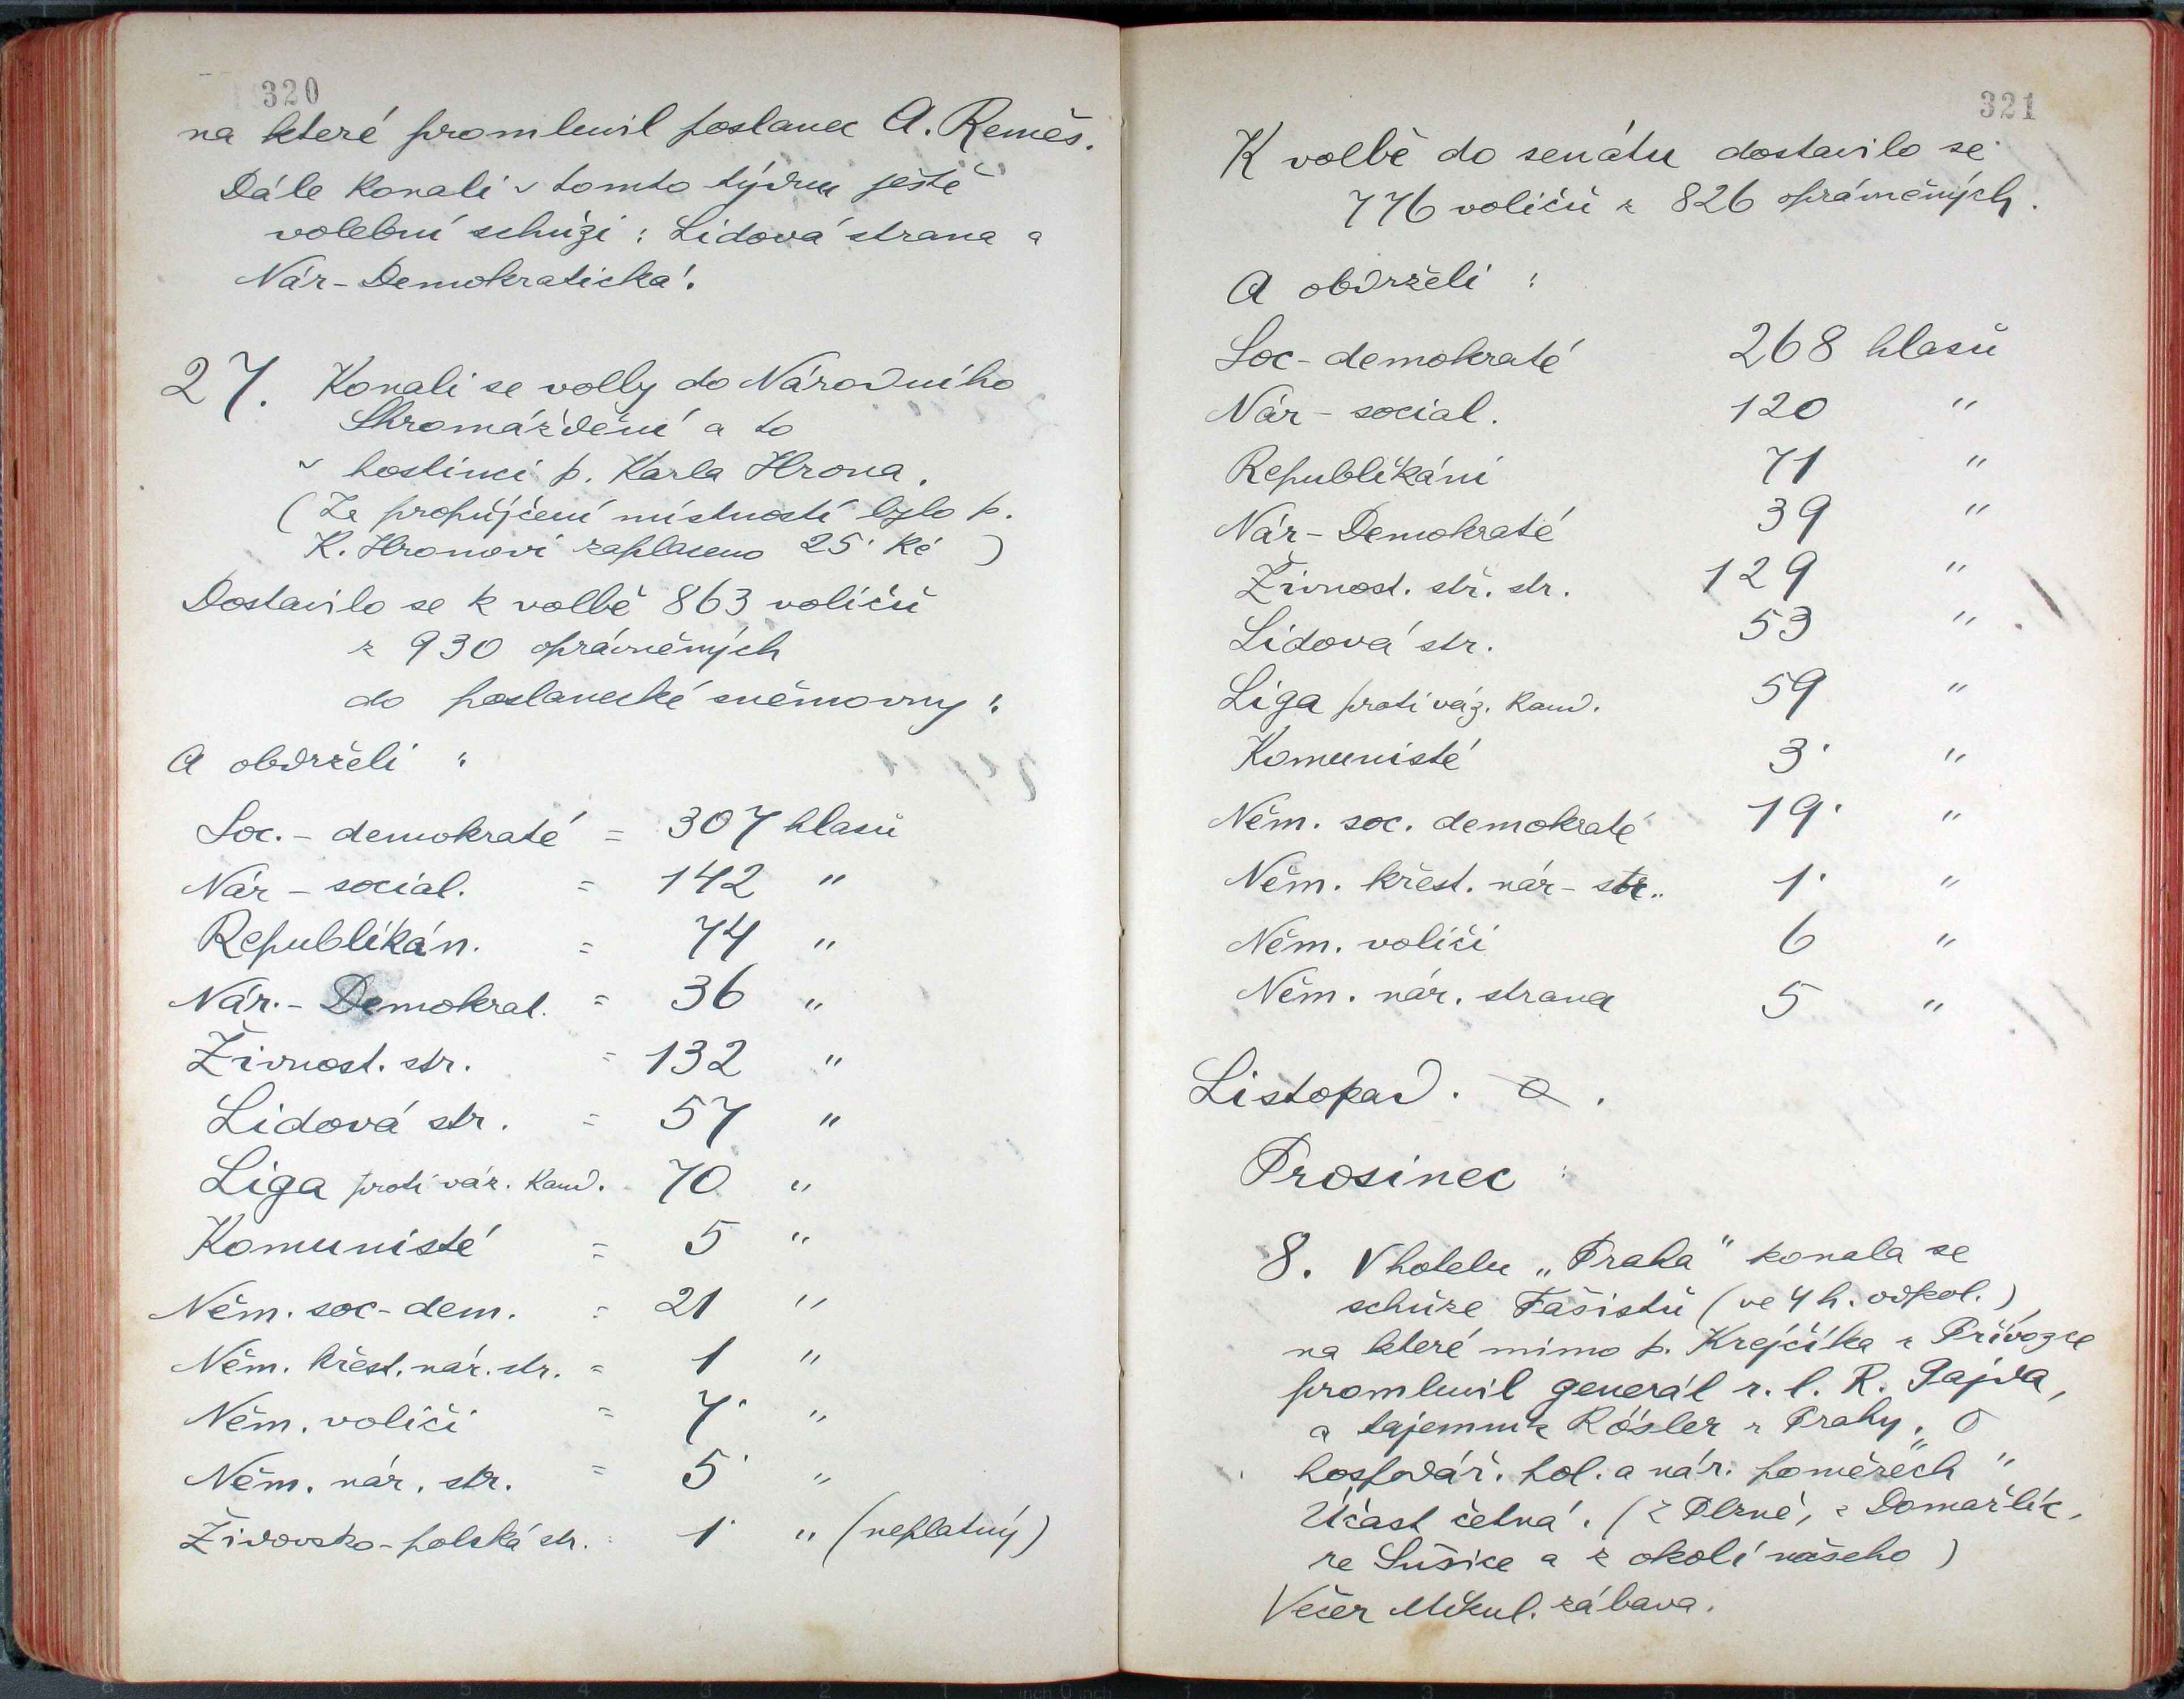 320
na které promluvil poslanec A. Remeš.
Dále konali v tomto týdnu ještě
volební schůzi : Lidová strana a
Nár-Demokratická.
27. Konali se volby do Národního
Shromáždění a to
v hostinci p. Karla Hrona.
(Za propůjčení místností bylo p.
K. Hronovi zaplaceno 25 Kč )
Dostavilo se k volbě 863 voličů
z 930 oprávněných
do poslanecké sněmovny :
A obdrželi :
Soc. - demokraté = 307 hlasů
Nár - social. = 142 "
Republikán. = 74 "
Nár. - Demokrat. = 36 "
Živnost. str. = 132 "
Lidová str. = 57 "
Liga proti váz. kand. 70 "
Komunisté = 5 "
Něm. soc-dem. = 21 "
Něm. křest. nár. str. = 1 "
Něm. voliči = 7 "
Něm. nár. str. = 5 "
Židovsko-polská str. : 1 " (neplatný)
321
K volbě do senátu dostavilo se
776 voličů z 826 oprávněných.
A obdrželi :
Soc-demokraté 268 hlasů
Nár - social. 120 "
Republikáni 71 "
Nár - Demokraté 39 "
Živnost. stř. str. 129 "
Lidová str. 53 "
Liga proti váz. kand. 59 "
Komunisté 3 "
Něm. soc. demokraté 19 "
Něm. křest. nár - str.. 1 "
Něm. voliči 6 "
Něm. nár. strana 5 "
Listopad.
Prosinec :
8. V hotelu „Praha" konala se
schůze Fašistů (ve 4 h. odpol.),
na které mimo p. Krejčíka z Přívozce
promluvil generál r. l. R. Gajda,
a tajemník Rösler z Prahy, „O
hospodář. pol. a nár. poměrech "
Účast četná. (z Plzně, z Domažlic,
ze Sušice a z okolí našeho )
Večer Mikul. zábava.